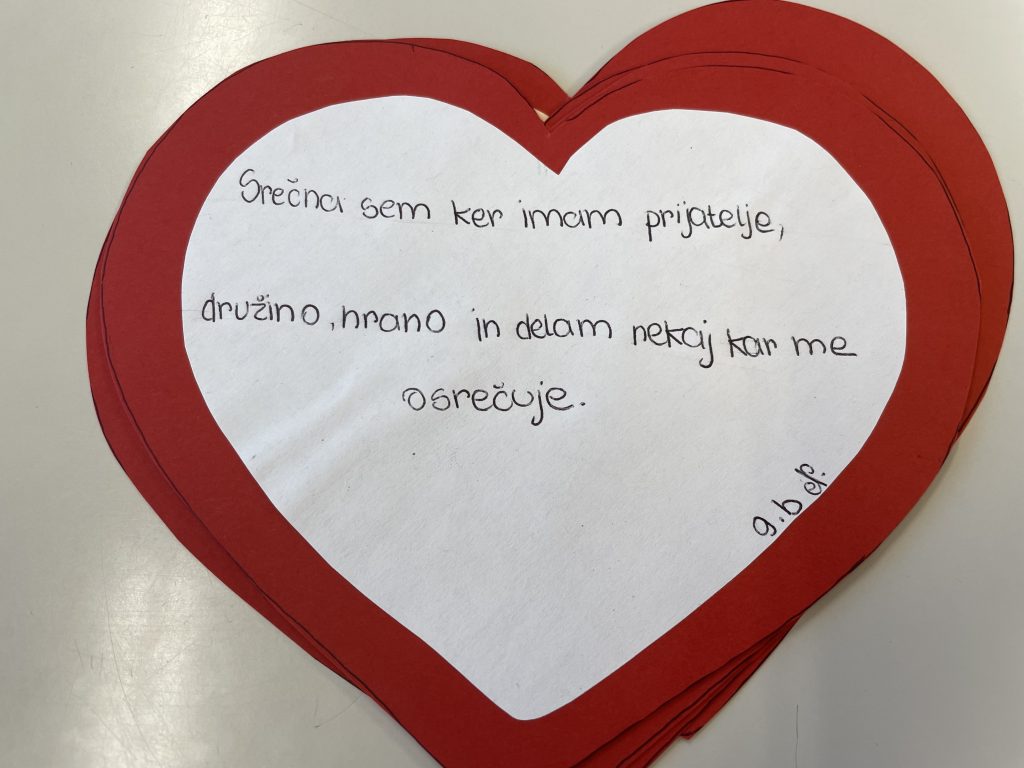 Srečna sem ker imam prijatelje,
družino, hrano in delam nekaj kar me
osrečuje.
9.b